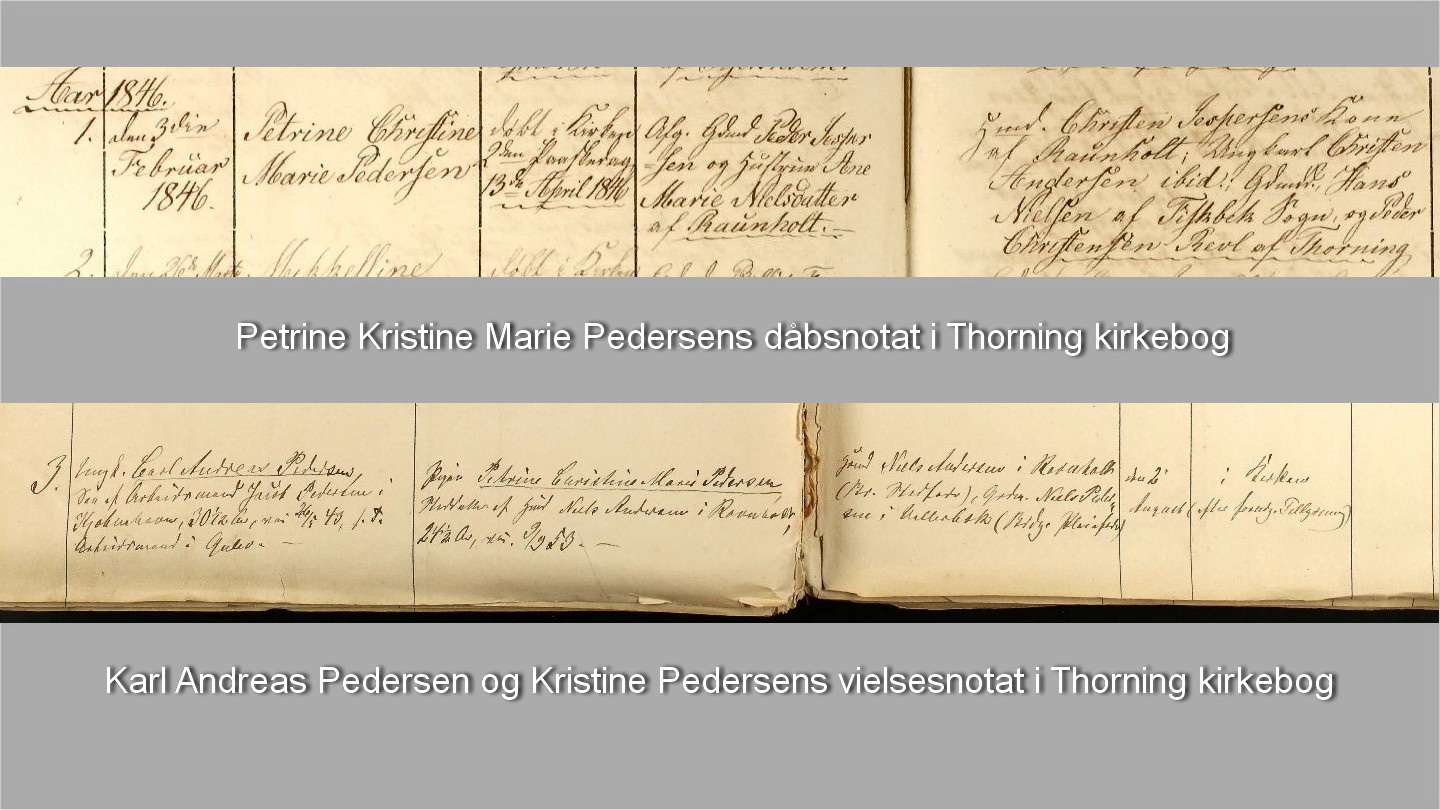 Aar 1846.
1. den 3die Februar 1846.
Petrine Christine
Marie Pedersen
døbt i Kirken
2den Paaskedag
13de April 1846
Afg. Gdmd Peder Jesper
-sen og Hustrue Ane
Marie Nielsdatter
af Raunholt.
Hmd. Christen Jespersens Kone
af Raunholt; Ungkarl Christen
Andersen ibid.; Gdmd. Hans
Nielsen af Fiskbek Sogn, og Peder
Christensen Revl af Thorning
2. den 26de Marts
Mikkelline
døbt i Kirken
Petrine Kristine Marie Pedersens dåbsnotat i Thorning kirkebog
3.
Ungk. Carl Andreas Pedersen,
Søn af Arbeidsmand Pedersen i
Kjøbenhavn, 30½ Aar, 43,
Arbeidsmand i
Pigen Petrine Christine Marie Pedersen
af Hmd Niels Andersen i Ravnholt,
24½ Aar, 9/9 53.
Hmd Niels Andersen i Ravnholt
Gdmd. Niels Peder-
sen i
den 2
August
i Kirken
(efter
Karl Andreas Pedersen og Kristine Pedersens vielsesnotat i Thorning kirkebog